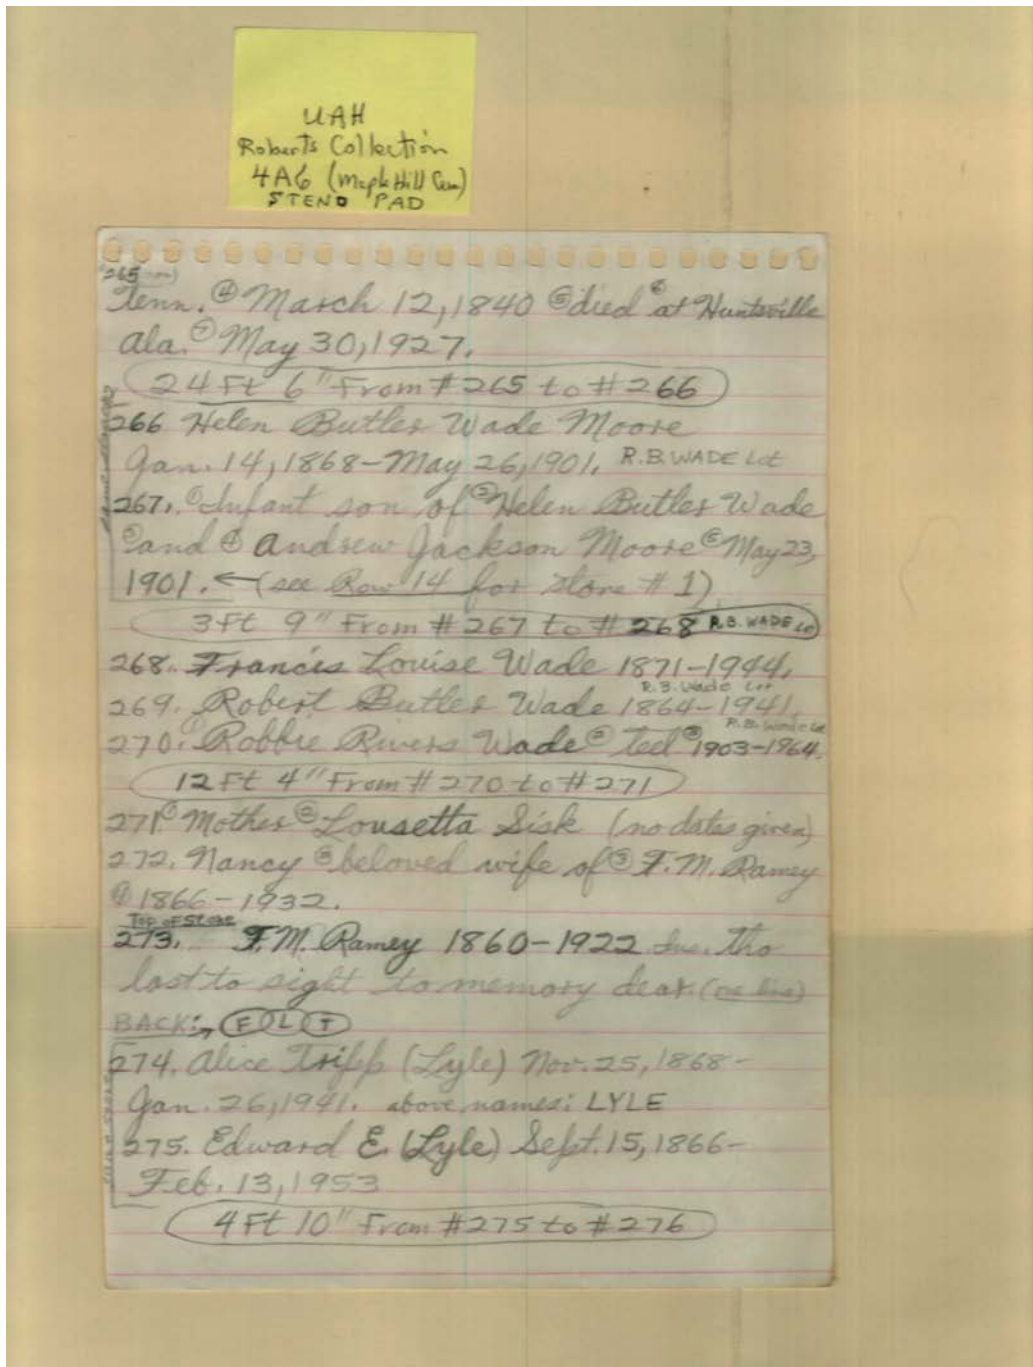 UAH
Roberts Collection
4A6 (Maple Hill Cem)
STENO PAD
265
Tenn. ④ March 12, 1840 ⑤ died ⑥ at Huntsville
Ala. ⑦ May 30, 1927.
24 Ft 6" From #265 to #266
266 Helen Butler Wade Moore
Jan. 14, 1868-May 26, 1901. R.B. WADE Lot
267. ① Infant son of ② Helen Butler Wade
③ and ④ Andrew Jackson Moore ⑤ May 23,
1901. ← (see Row 14 for stone #1)
3 Ft 9" From #267 to #268 R.B. WADE Lot
268. Francis Louise Wade 1871-1944.
R.B. Wade Lot
269. Robert Butler Wade 1864-1941.
R.B. Wade Lot
270. ① Robbie Rivers Wade ② Teel ③ 1903-1964.
12 Ft 4" From #270 to #271
271 ① Mother ② Lousetta Sisk (no dates given)
272. Nancy ② beloved wife of ③ F.M. Ramey
④ 1866-1932.
Top of Stone
273. F.M. Ramey 1860-1922 Ins. Tho
lost to sight to memory dear. (one line)
BACK: → F L T
274. Alice Tripp (Lyle) Nov. 25, 1868-
Jan. 26, 1941. above names: LYLE
275. Edward E. (Lyle) Sept. 15, 1866-
Feb. 13, 1953
4 Ft 10" From #275 to #276